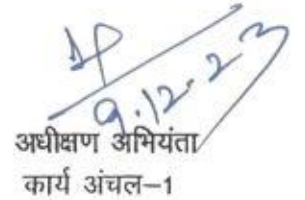 9.12.23
अधीक्षण अभियंता
कार्य अंचल-1